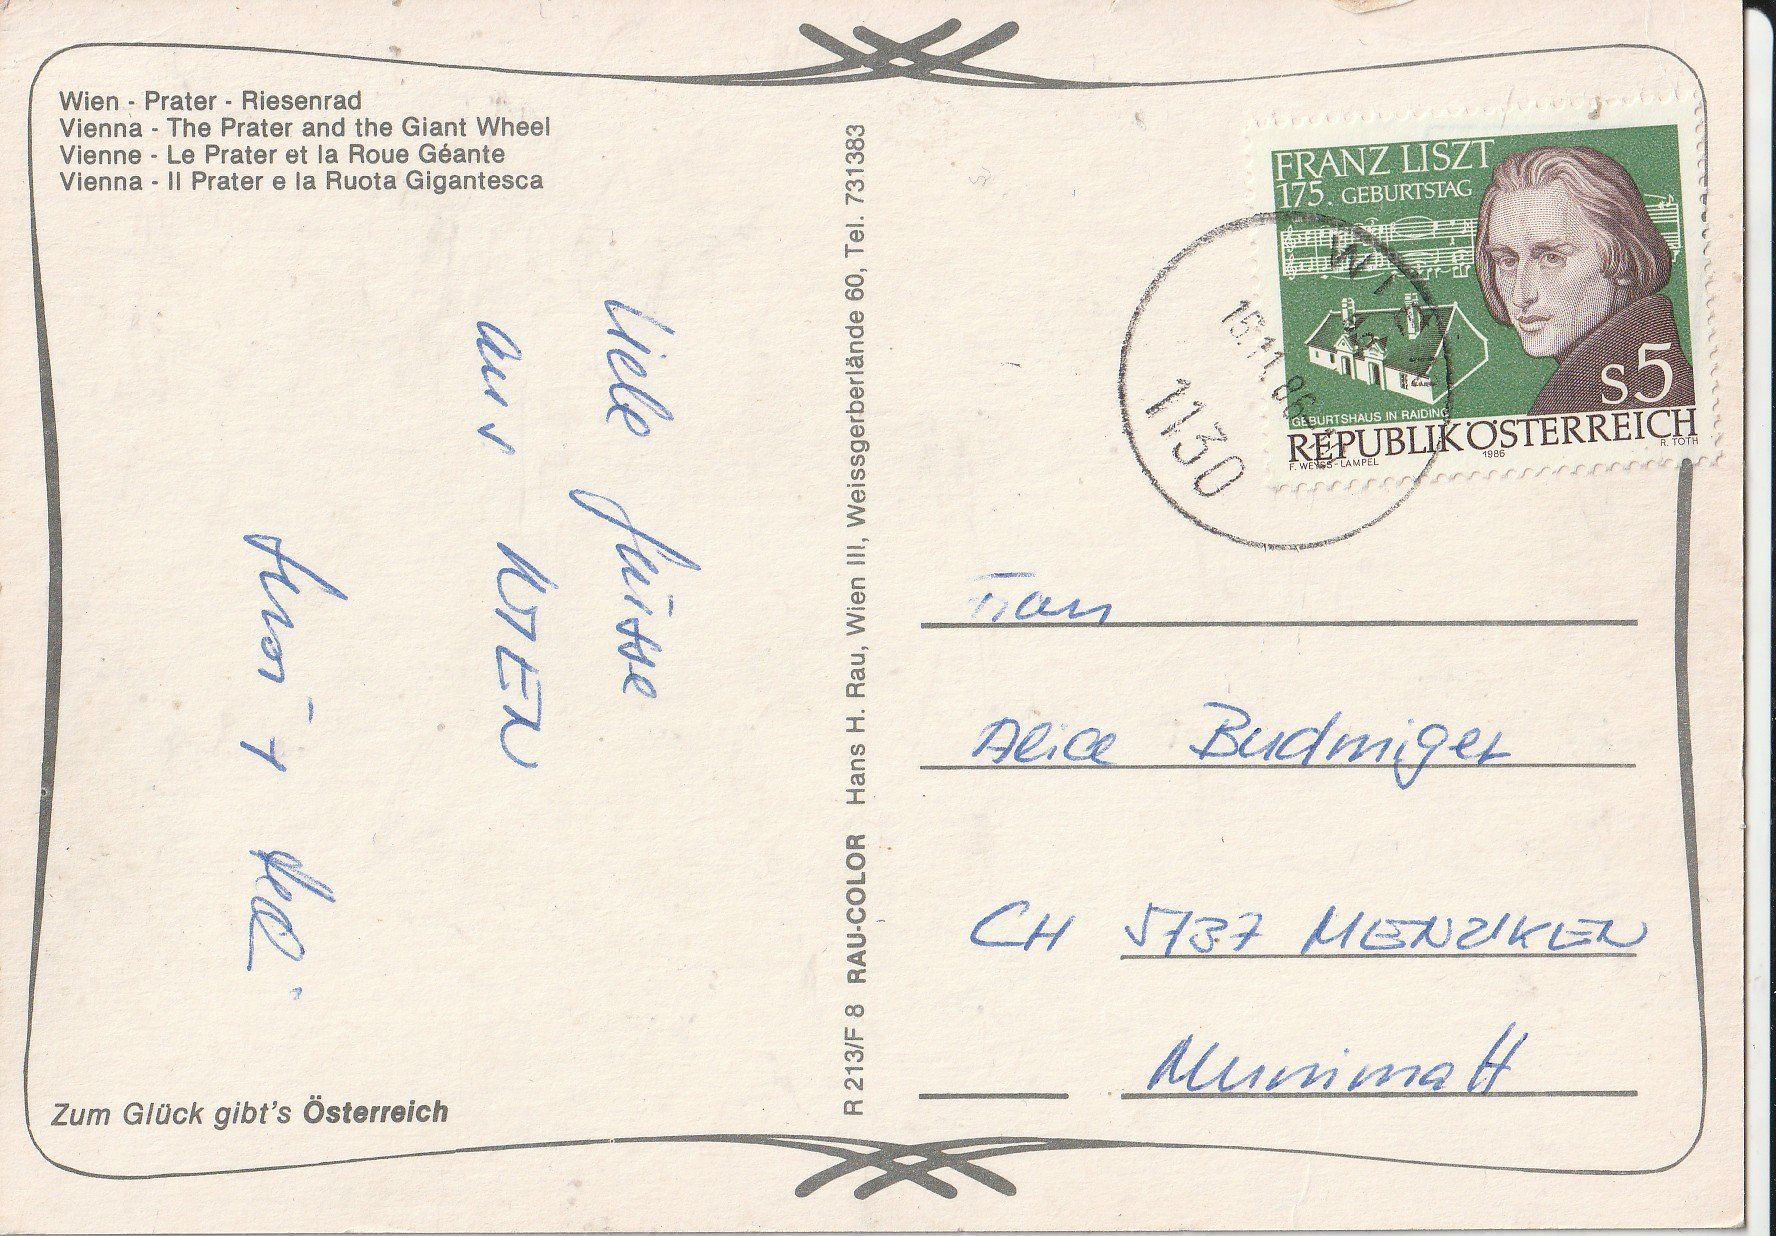 Wien - Prater - Riesenrad
Vienna - The Prater and the Giant Wheel
Vienne - Le Prater et la Roue Géante
Vienna - Il Prater e la Ruota Gigantesca
Viele Grüsse
aus WIEN
Zum Glück gibt's Österreich
R 213/F 8 RAU-COLOR Hans H. Rau, Wien III, Weissgerberlände 60, Tel. 731383
FRANZ LISZT
175. GEBURTSTAG
GEBURTSHAUS IN RAIDING
S5
REPUBLIK ÖSTERREICH
F. WEYSS-LAMPEL 1986 R. TOTH
WIEN
1130
Frau
Alice Budmiger
CH 5737 MENZIKEN
Munimatt